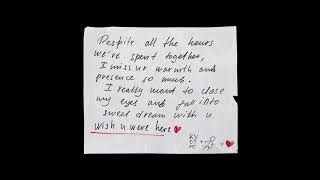 Despite all the hours
we've spent together,
I miss ur warmth and
presence so much.
I really want to close
my eyes and fall into
sweet dream with u.
wish u were here